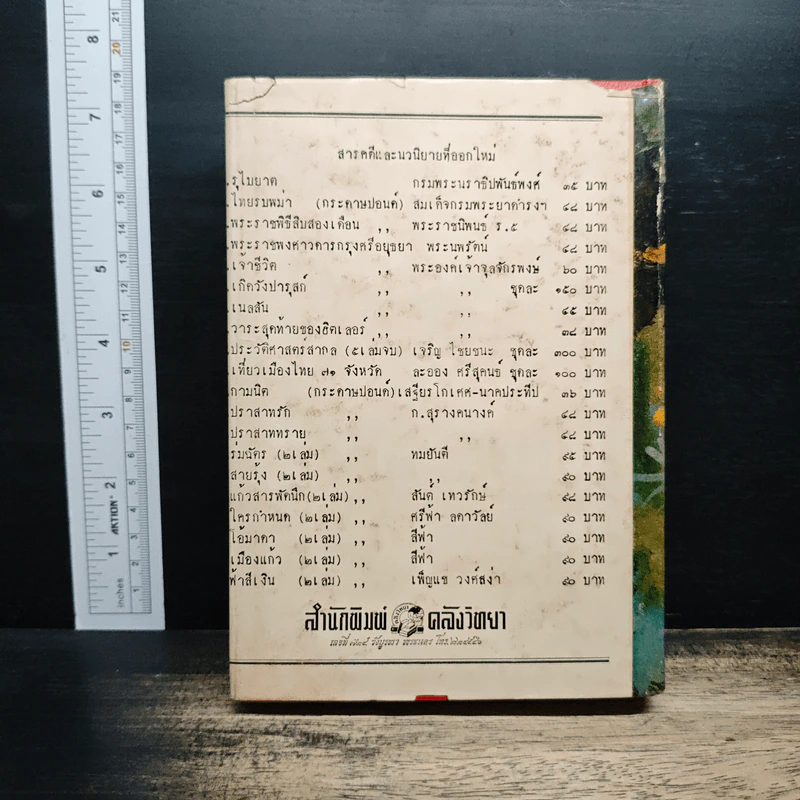 สารคดีและนวนิยายที่ออกใหม่
.รุไบยาต กรมพระนราธิปพันธ์พงศ์ ๓๕ บาท
.ไทยรบพม่า (กระดาษปอนด์) สมเด็จกรมพระยาดำรงฯ ๔๘ บาท
.พระราชพิธีสิบสองเดือน ,, พระราชนิพนธ์ ร.๕ ๔๘ บาท
.พระราชพงศาวดารกรุงศรีอยุธยา พระนพรัตน์ ๔๘ บาท
.เจ้าชีวิต ,, พระองค์เจ้าจุลจักรพงษ์ ๖๐ บาท
.เกิดวังปารุสก์ ,, ,, ชุดละ ๑๕๐ บาท
.เนลสัน ,, ,, ๔๕ บาท
.วาระสุดท้ายของฮิตเลอร์ ,, ,, ๓๘ บาท
.ประวัติศาสตร์สากล (๕เล่มจบ) เจริญ ไชยชนะ ชุดละ ๓๐๐ บาท
.เที่ยวเมืองไทย ๗๑ จังหวัด ละออง ศรีสุคนธ์ ชุดละ ๑๐๐ บาท
.กามนิต (กระดาษปอนด์) เสฐียรโกเศศ-นาคประทีป ๓๖ บาท
.ปราสาทรัก ,, ก.สุรางคนางค์ ๔๘ บาท
.ปราสาททราย ,, ,, ๔๘ บาท
ร่มฉัตร (๒เล่ม) ,, ทมยันตี ๙๕ บาท
สายรุ้ง (๒เล่ม) ,, ,, ๙๐ บาท
แก้วสารพัดนึก(๒เล่ม) ,, สันต์ เทวรักษ์ ๙๘ บาท
ใครกำหนด (๒เล่ม) ,, ศรีฟ้า ลดาวัลย์ ๙๐ บาท
โอ้มาดา (๒เล่ม) ,, สีฟ้า ๙๐ บาท
เมืองแก้ว (๒เล่ม) ,, สีฟ้า ๙๐ บาท
ฟ้าสีเงิน (๒เล่ม) ,, เพ็ญแข วงศ์สง่า ๙๐ บาท
สำนักพิมพ์ คลังวิทยา
เลขที่ วังบูรพา พระนคร โทร.
inches AKTION 1 2 3 4 5 6 7 8
10 11 12 13 14 15 16 17 18 19 20 21